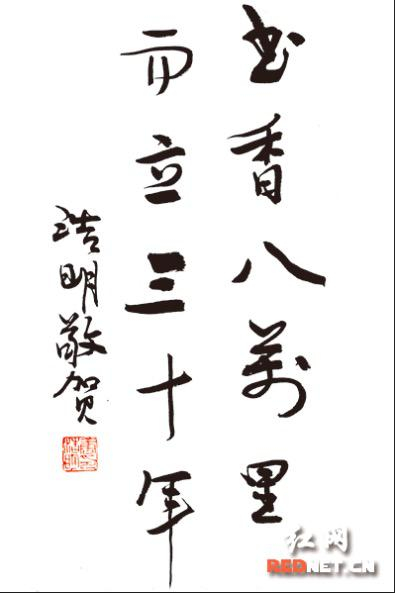 书香八萬里
而立三十年
浩明敬贺
红网
REDNET.CN